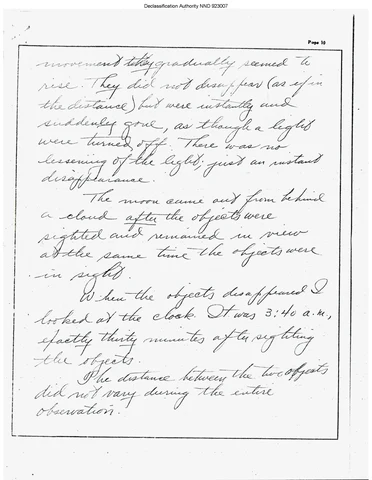 Declassification Authority NND 923007
Page 16
movement they gradually seemed to
rise. They did not disappear (as if in
the distance) but were instantly and
suddenly gone, as though a light
were turned off. There was no
lessening of the light; just an instant
disappearance.
The moon came out from behind
a cloud after the objects were
sighted and remained in view
at the same time the objects were
in sight.
When the objects disappeared I
looked at the clock. It was 3:40 a.m.,
exactly thirty minutes after sighting
the objects.
The distance between the two objects
did not vary during the entire
observation.